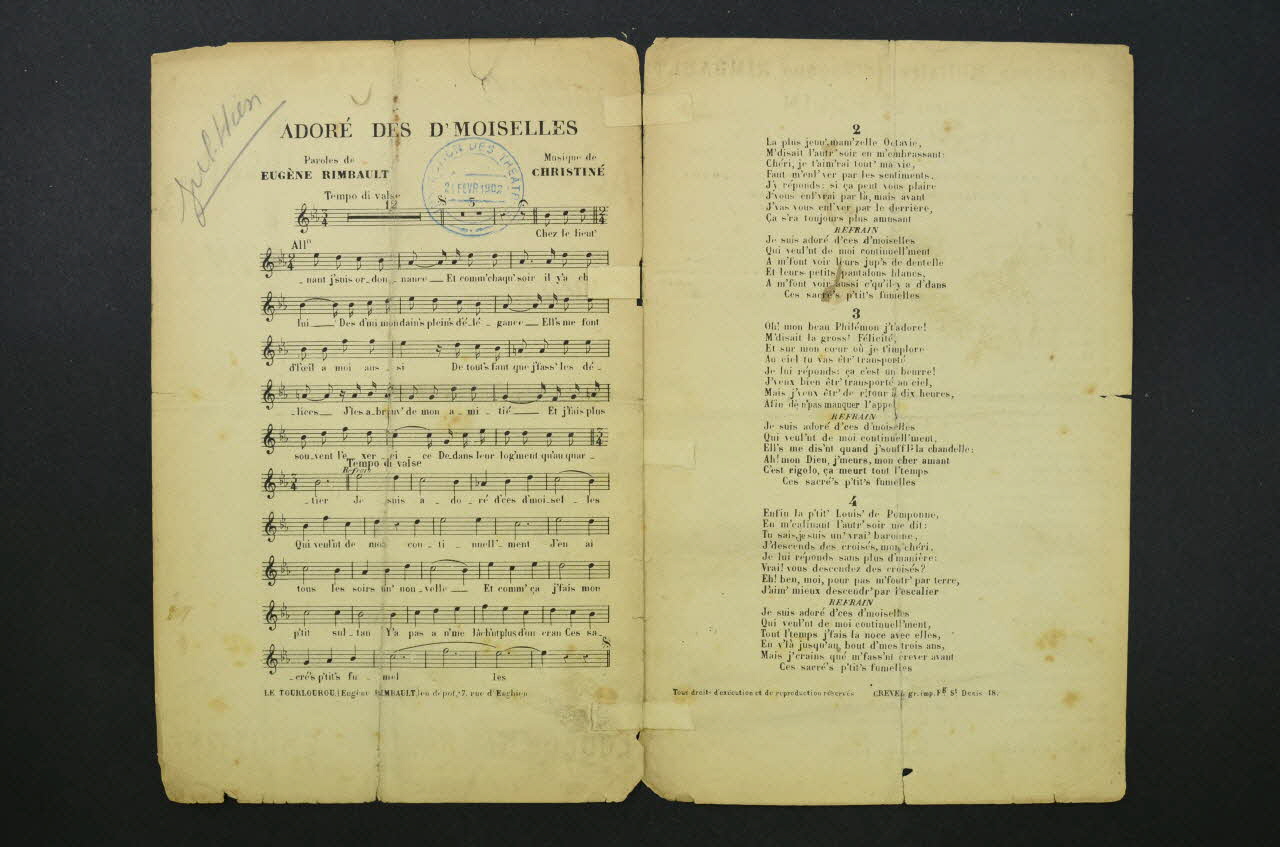 ADORÉ DES D'MOISELLES
Paroles de
EUGÈNE RIMBAULT
Musique de
CHRISTINÉ
DES THÉÂT
21 FEVR 1902
Tempo di valse
12
5
Chez le lieut'
Allº
_nant j'suis or_don_nance__ Et comm'chaqu'soir il y'a ch
lui__ Des d'mi mondain's plein's d'é_lé_gance__ Ell's me font
d'l'œil a moi aus_si De tout's faut que j'fass' les dé_
_lices__ J'les a_breuv' de mon a_mi_tié__ Et j'fais plus
sou_vent l'e_xer_ci_ce De_dans leur log'ment qu'au quar_
Tempo di valse
Refrain
_tier Je suis a_do_ré d'ces d'moi_sel_les
Qui veul'nt de moi con_ti_nuell'_ment J'en ai
tous les soirs un' nou_velle__ Et comm' ça j'fais mon
p'tit sul_tan Y'a pas a n'me lâch'nt plus d'un cran Ces sa_
_cré's p'tit's fu_mel les
LE TOURLOUROU, (Eugène RIMBAULT) 7, rue d'Enghien
2
La plus jeun' mam'zelle Octavie,
M'disait l'autr' soir en m'embrassant:
Chéri, je t'aim'rai tout' ma vie,
Faut m'enl'ver par les sentiments.
J'y réponds: si ça peut vous plaire
J'vous enl'vrai par là, mais avant
J'vas vous enl'ver par le derrière,
Ça s'ra toujours plus amusant
REFRAIN
Je suis adoré d'ces d'moiselles
Qui veul'nt de moi continuell'ment
A m'font voir leurs jup's de dentelle
Et leurs petits pantalons blancs,
A m'font voir aussi c'qu'il y a d'dans
Ces sacré's p'tit's fumelles
3
Oh! mon beau Philémon j't'adore!
M'disait la gross' Félicité,
Et sur mon cœur où je t'implore
Au ciel tu vas êtr' transporté
Je lui réponds: ça c'est un beurre!
J'veux bien êtr' transporté au ciel,
Mais j'veux êtr' de r'tour à dix heures,
Afin de n'pas manquer l'appel
REFRAIN
Je suis adoré d'ces d'moiselles
Qui veul'nt de moi continuell'ment,
Ell's me dis'nt quand j'souffl' la chandelle:
Ah! mon Dieu, j'meurs, mon cher amant
C'est rigolo, ça meurt tout l'temps
Ces sacré's p'tit's fumelles
4
Enfin la p'tit' Louis' de Pomponne,
En m'calinant l'autr' soir me dit:
Tu sais, je suis un' vrai' baronne,
J'descends des croisés, mon chéri,
Je lui réponds sans plus d'manière:
Vrai! vous descendez des croisés?
Eh! ben, moi, pour pas m'foutr' par terre,
J'aim' mieux descendr' par l'escalier
REFRAIN
Je suis adoré d'ces d'moiselles
Qui veul'nt de moi continuell'ment,
Tout l'temps j'fais la noce avec elles,
En v'là jusqu'au bout d'mes trois ans,
Mais j'crains qué m'fass'nt crever avant
Ces sacré's p'tit's fumelles
Tous droits d'exécution et de reproduction réservés CREVEL gr. imp. Fg St Denis 18.